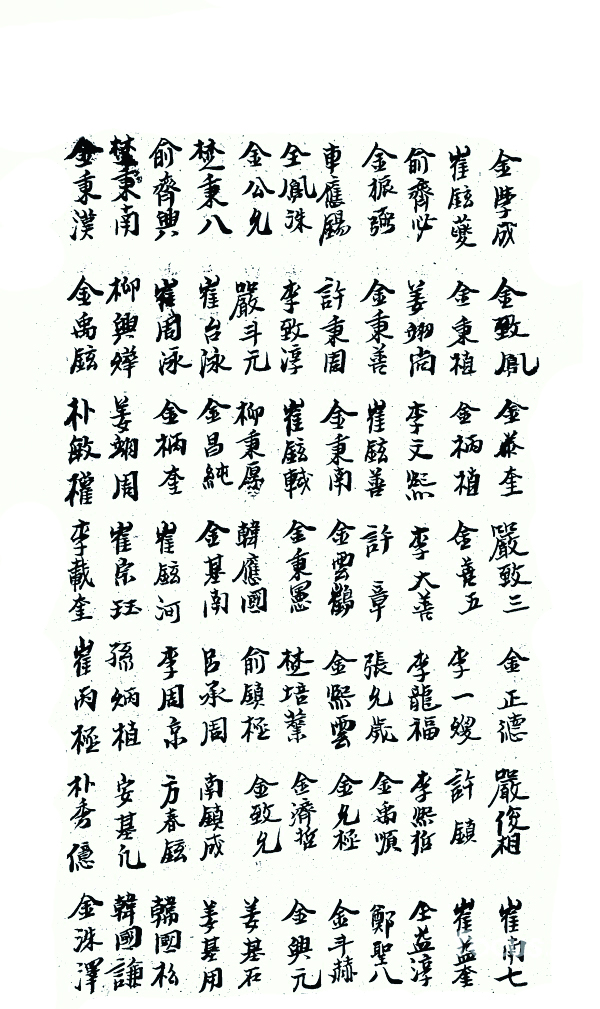 金學成 金致鳳 金泰奎 嚴致三 金正德 嚴俊相 崔南七
崔鉉夔 金秉植 金柄植 金養五 李一燮 許鎮 崔益奎
俞齊必 姜翊尚 李文熙 李大善 李龍福 李熙哲 全益淳
金振弼 金秉善 崔鉉善 許章 張允 金禹順 鄭聖八
車應暘 許秉周 金秉南 金雲鶴 金熙雲 金允極 金斗赫
全鳳洙 李致淳 崔鉉軾 金秉憲 楚培業 金濟哲 金興元
金公允 嚴斗元 柳秉厚 韓應國 俞鎮極 金致允 姜基石
楚秉八 崔台泳 金昌純 金基南 呂承周 南鎮成 姜基用
俞齊興 崔周泳 金柄奎 崔鉉河 李周京 方春鉉 韓國松
楚秉南 柳興燁 姜翊周 崔宗珏 孫炳植 安基凡 韓國謙
金秉漢 金禹鉉 朴敏權 李載奎 崔丙極 朴秀億 金洙澤